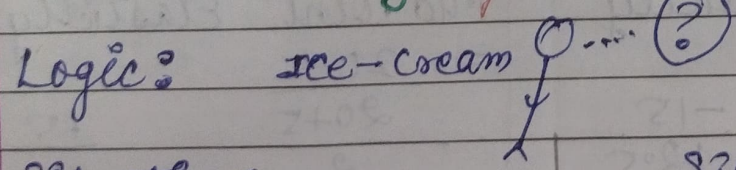 Logic: Ice-Cream .... ?